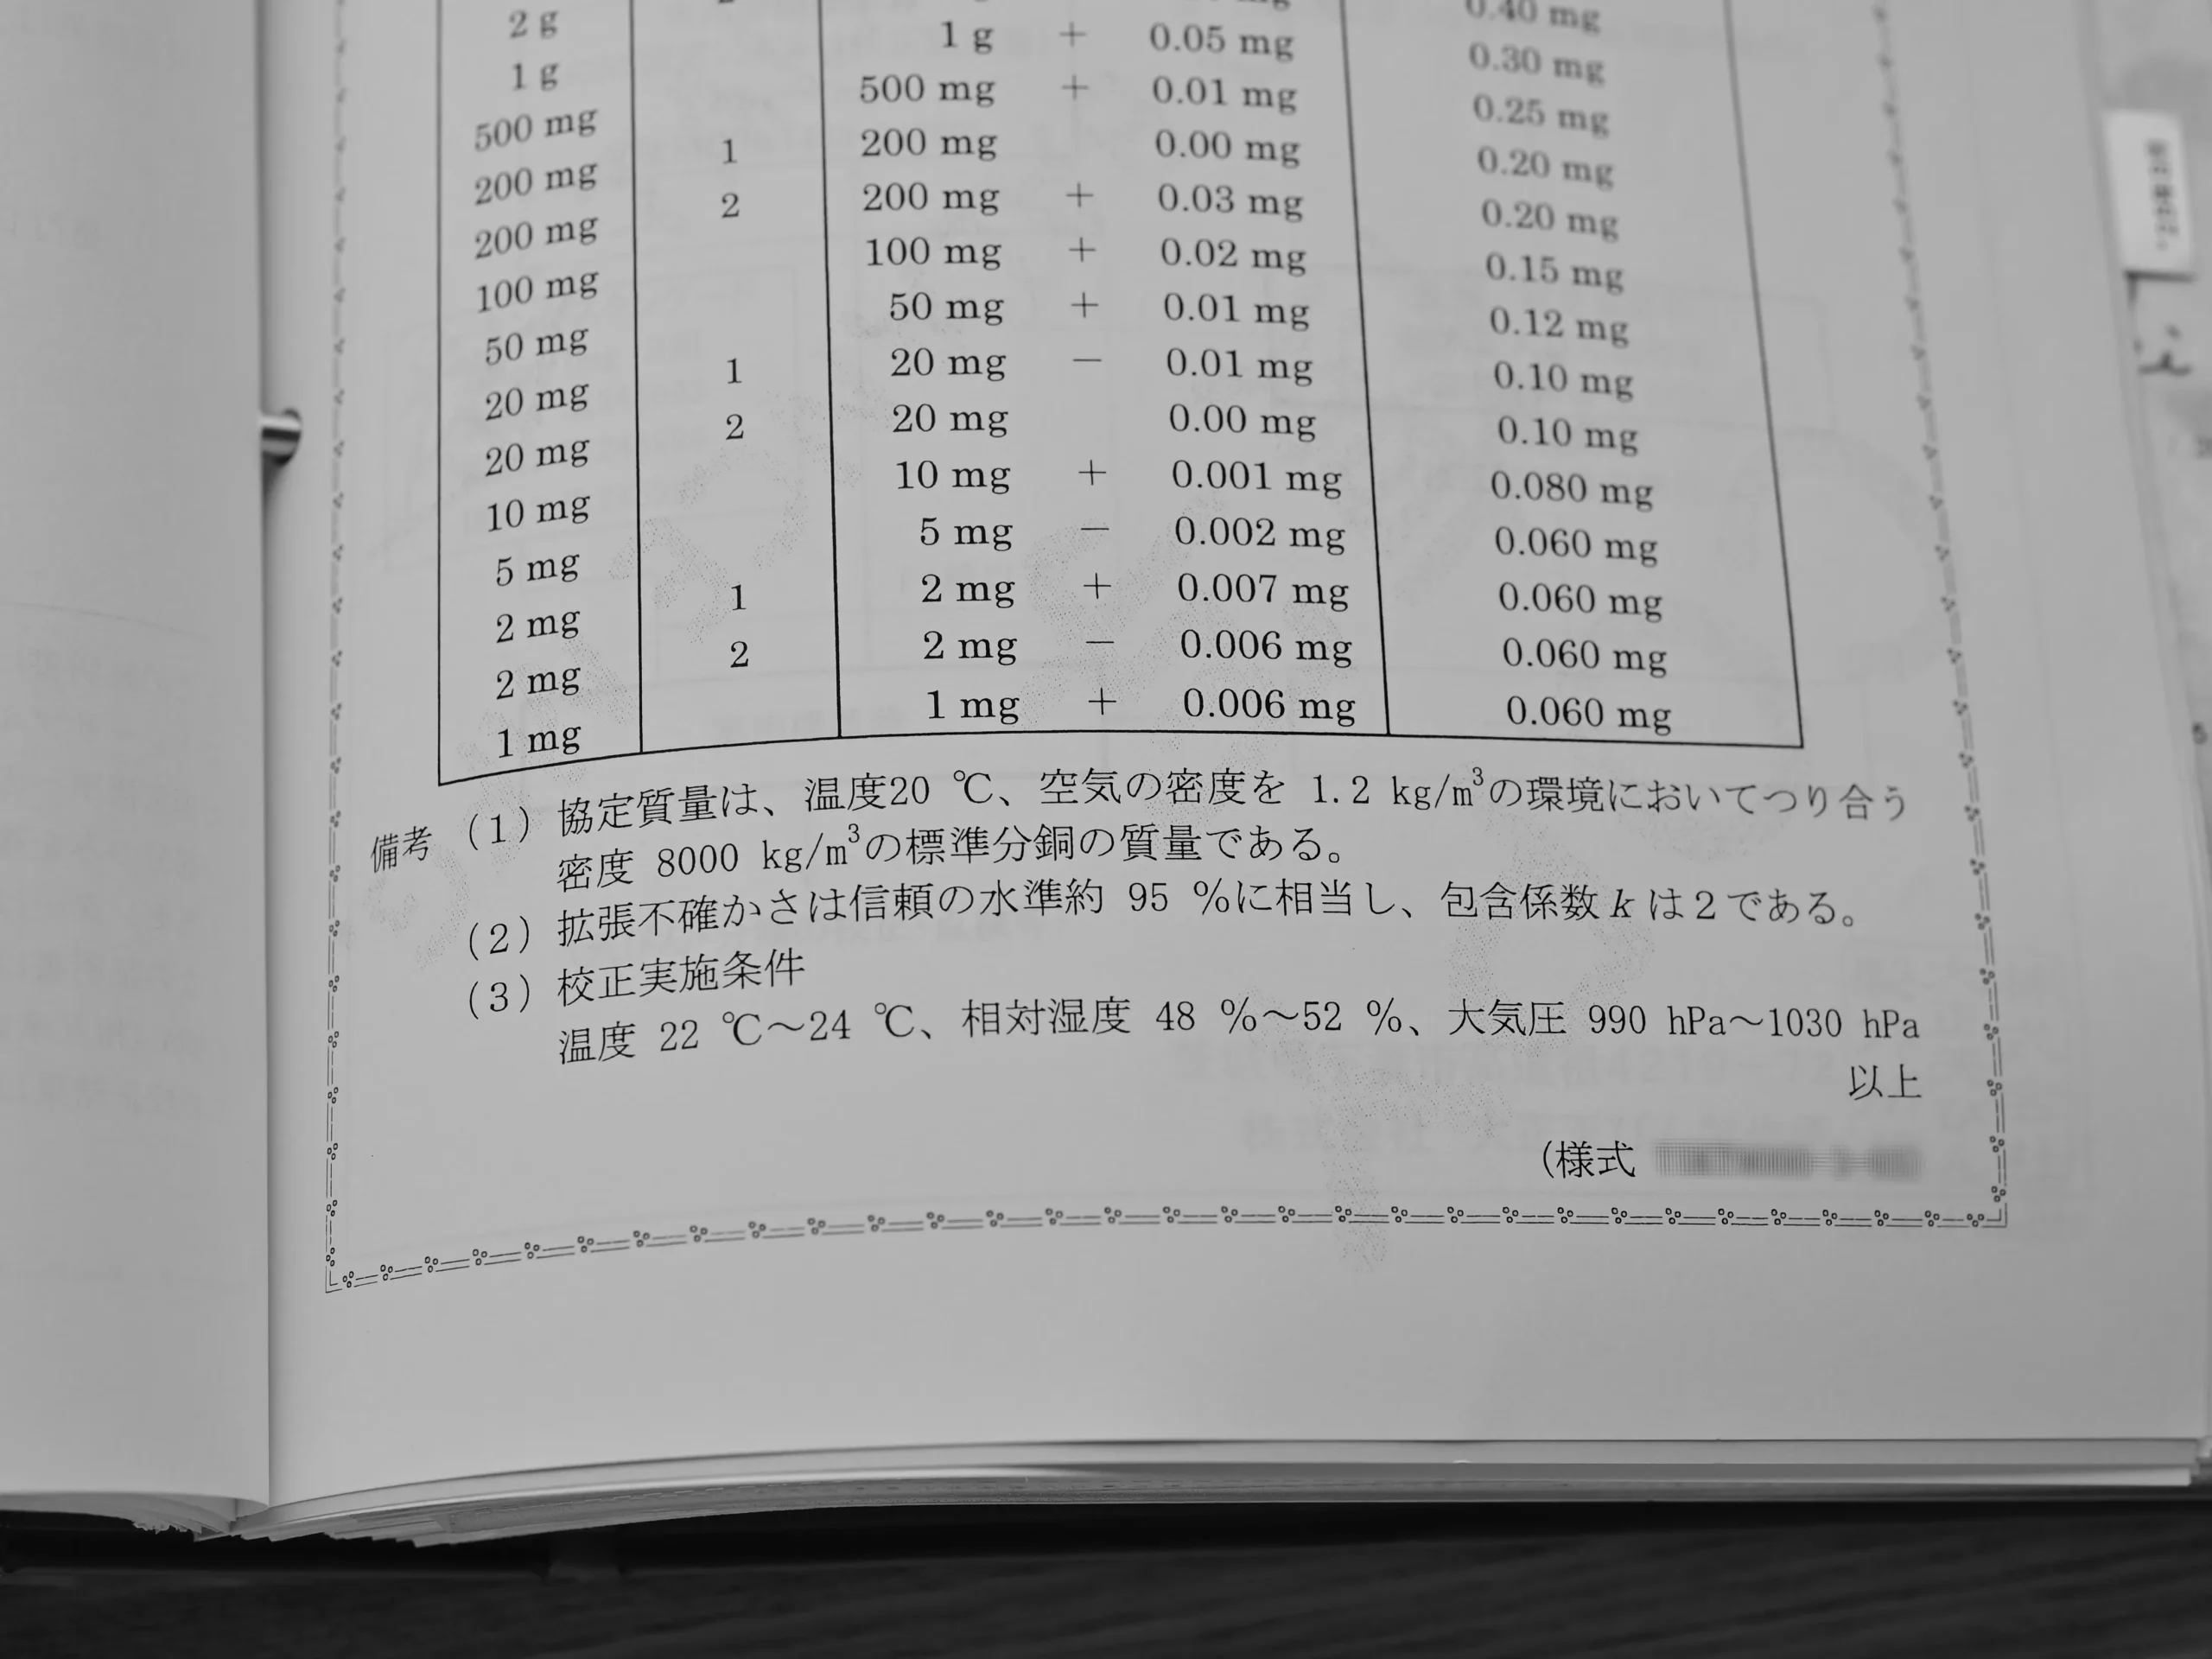 2 g
1 g 1 g + 0.05 mg 0.30 mg
500 mg 500 mg + 0.01 mg 0.25 mg
200 mg 1 200 mg 0.00 mg 0.20 mg
200 mg 2 200 mg + 0.03 mg 0.20 mg
100 mg 100 mg + 0.02 mg 0.15 mg
50 mg 50 mg + 0.01 mg 0.12 mg
20 mg 1 20 mg − 0.01 mg 0.10 mg
20 mg 2 20 mg 0.00 mg 0.10 mg
10 mg 10 mg + 0.001 mg 0.080 mg
5 mg 5 mg − 0.002 mg 0.060 mg
2 mg 1 2 mg + 0.007 mg 0.060 mg
2 mg 2 2 mg − 0.006 mg 0.060 mg
1 mg 1 mg + 0.006 mg 0.060 mg
備考 (1) 協定質量は、温度20 ℃、空気の密度を 1.2 kg/m³の環境においてつり合う
密度 8000 kg/m³の標準分銅の質量である。
(2) 拡張不確かさは信頼の水準約 95 %に相当し、包含係数 k は 2 である。
(3) 校正実施条件
温度 22 ℃～24 ℃、相対湿度 48 %～52 %、大気圧 990 hPa～1030 hPa
以上
(様式